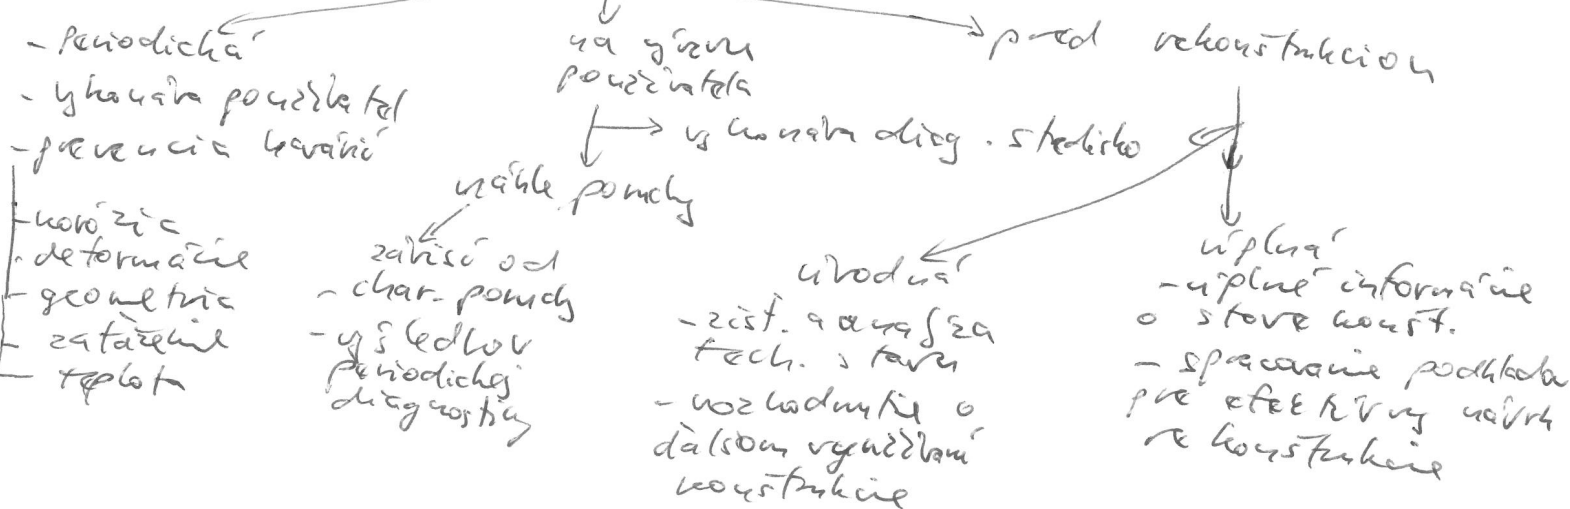 - Periodická
- vykonáva používateľ
- prevencia havárií
- korózia
- deformácie
- geometria
- zaťaženie
- teplota
na výzvu
používateľa
vykonáva diag. stredisko
náhle poruchy
závisí od
- char. poruchy
- výsledkov
periodickej
diagnostiky
pred rekonštrukciou
úvodná
- zist. a analýza
tech. stavu
- rozhodnutie o
ďalšom využívaní
konštrukcie
úplná
- úplné informácie
o stave konšt.
- spracovanie podkladov
pre efektívny návrh
rekonštrukcie